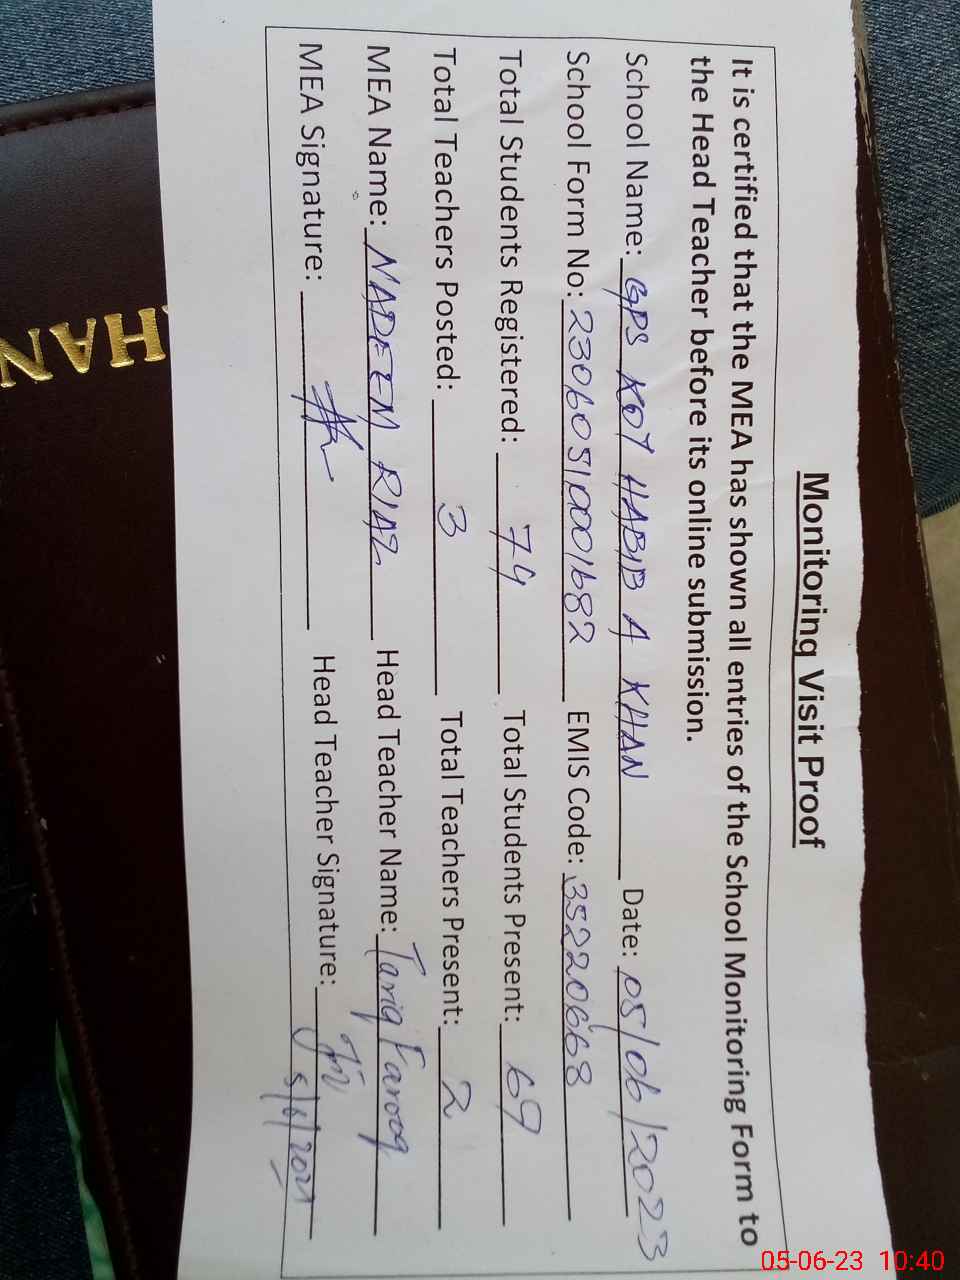 Monitoring Visit Proof
It is certified that the MEA has shown all entries of the School Monitoring Form to
the Head Teacher before its online submission.
School Name: GPS KOT HABIB A KHAN Date: 05/06/2023
School Form No: 23060510001682 EMIS Code: 35220668
Total Students Registered: 74 Total Students Present: 69
Total Teachers Posted: 3 Total Teachers Present: 2
MEA Name: NADEEM RIAZ Head Teacher Name: Tariq Farooq
MEA Signature: Head Teacher Signature:
HAN
05-06-23 10:40